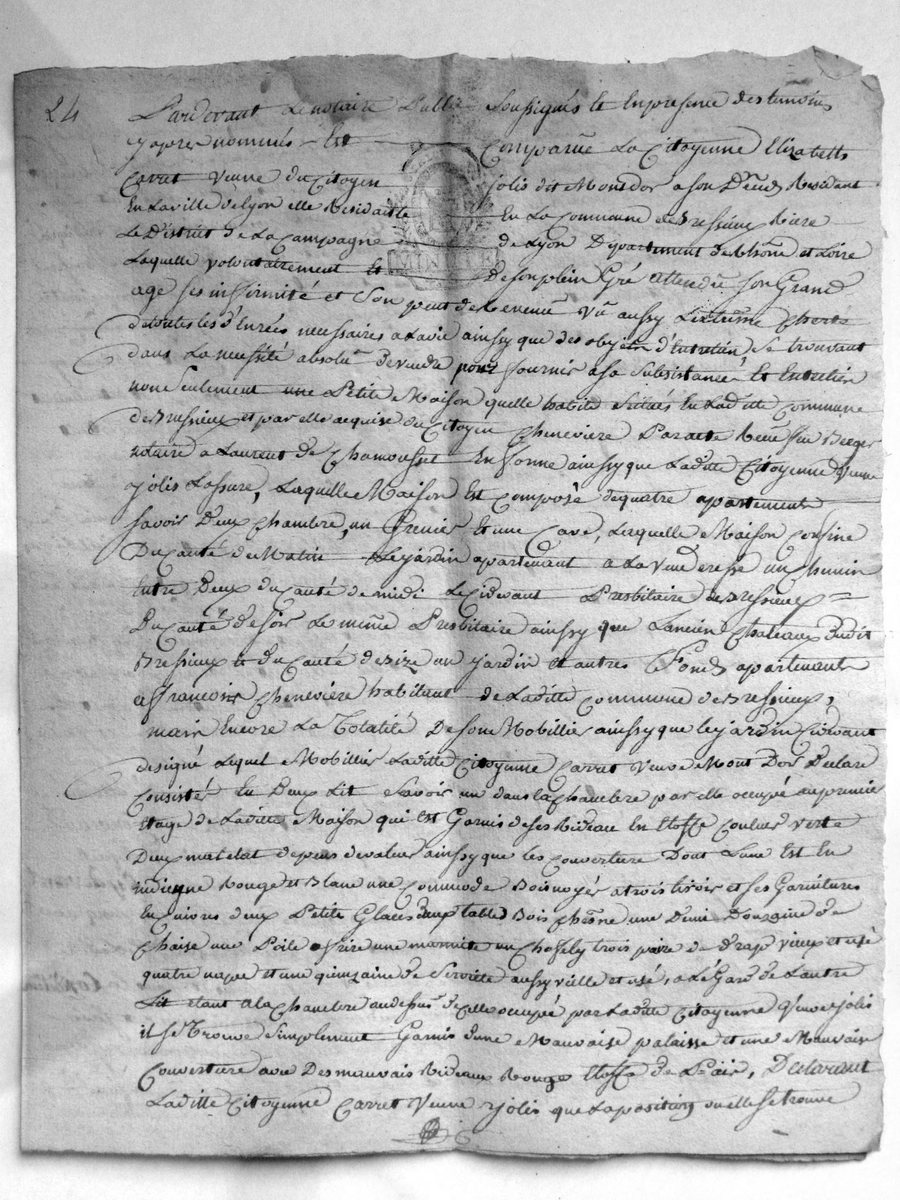 24
Pardevant Le notaire Public Soussignés Et En presence des temoins
yapres nommés Est Comparue La Citoyenne Elizabeth
Carret Veuve du Citoyen jolis dit Montdor a son Deces Residant
En La ville de Lyon elle Residante En La Commune de Bressieux
Le District de La Campagne de Lyon Departement de Rhone et Loire
MINUTE
Laquelle volontairement Et De son plein Gré attendu son Grand
age ses infirmité et Son peut de Revenu Vû aussy Lextreme Cherté
de toutes les d'Enrées necessaires a La vie ainssy que des objets d'Entretien, Se trouvant
dans La necessité absolue De vendre pour fournir a sa Subsistance Et Entretien
non Seulement une Petite Maison quelle habite Situés En Laditte Commune
de Bressieux et par elle acquise du Citoyen Cheneviere Par acte Reçu
notaire a Laurent de Chamousset En forme ainssy que Laditte Citoyenne Veuve
jolis Lassure, Laquelle Maison Est Composé de quatre apartement
savoir Deux Chambre, un Grenier Et une Cave, Laquelle Maison Confine
Du Cauté du Matin Le jardin apartenant a La Venderesse un Chemin
Entre Deux du Cauté de midi Le Cidevant Presbitaire de Bressieux
Du Cauté de soir Le même Presbitaire ainssy que Lancien Chateaux Dudit
Bressieux Et du Cauté de Bize un jardin et autres Fonds apartenant
a francoise Cheneviere habitant de Laditte Commune de Bressieux,
mais Encore La Totalité De son Mobillier ainssy que le jardin Cidevant
designé Lequel Mobillier Laditte Citoyenne Carret Veuve Mont Dor Declare
Consisté En Deux Lit Savoir un dans La Chambre par elle occupé au premier
Etage de Laditte Maison qui est Garnis de ses Rideau En Etoffe Couleur verte
Deux matelat de peus de valeur ainssy que les Couverture Dont Lune Est En
indienne Rouge et Blanc une Commode Bois noyer a trois tiroir et ses Garnitures
En Cuivre deux Petite Glaces deux table Bois Chesne une Demi Douzaine de
Chaise une Poile a frire une marmite un trois paire de drap vieux et usé
quatre napes et une quinzaine de Serviete aussy ville et usé, a LEgard de Lautre
Lit etant a La Chambre au dessus de Celle occupée par Laditte Citoyenne Veuve jolis
il se Trouve Simplement Garnis dune Mauvaise palaisse et une Mauvaise
Couverture avec Des mauvais Rideaux Rouge Etoffe de Declarant
Laditte Citoyenne Carret Veuve jolis que La position ou elle se trouve